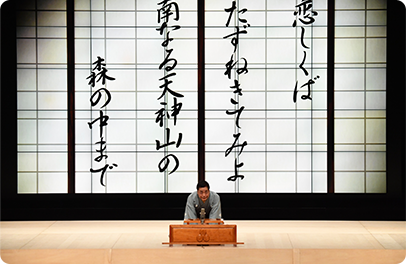 恋しくば
たずねきてみよ
南なる天神山の
森の中まで